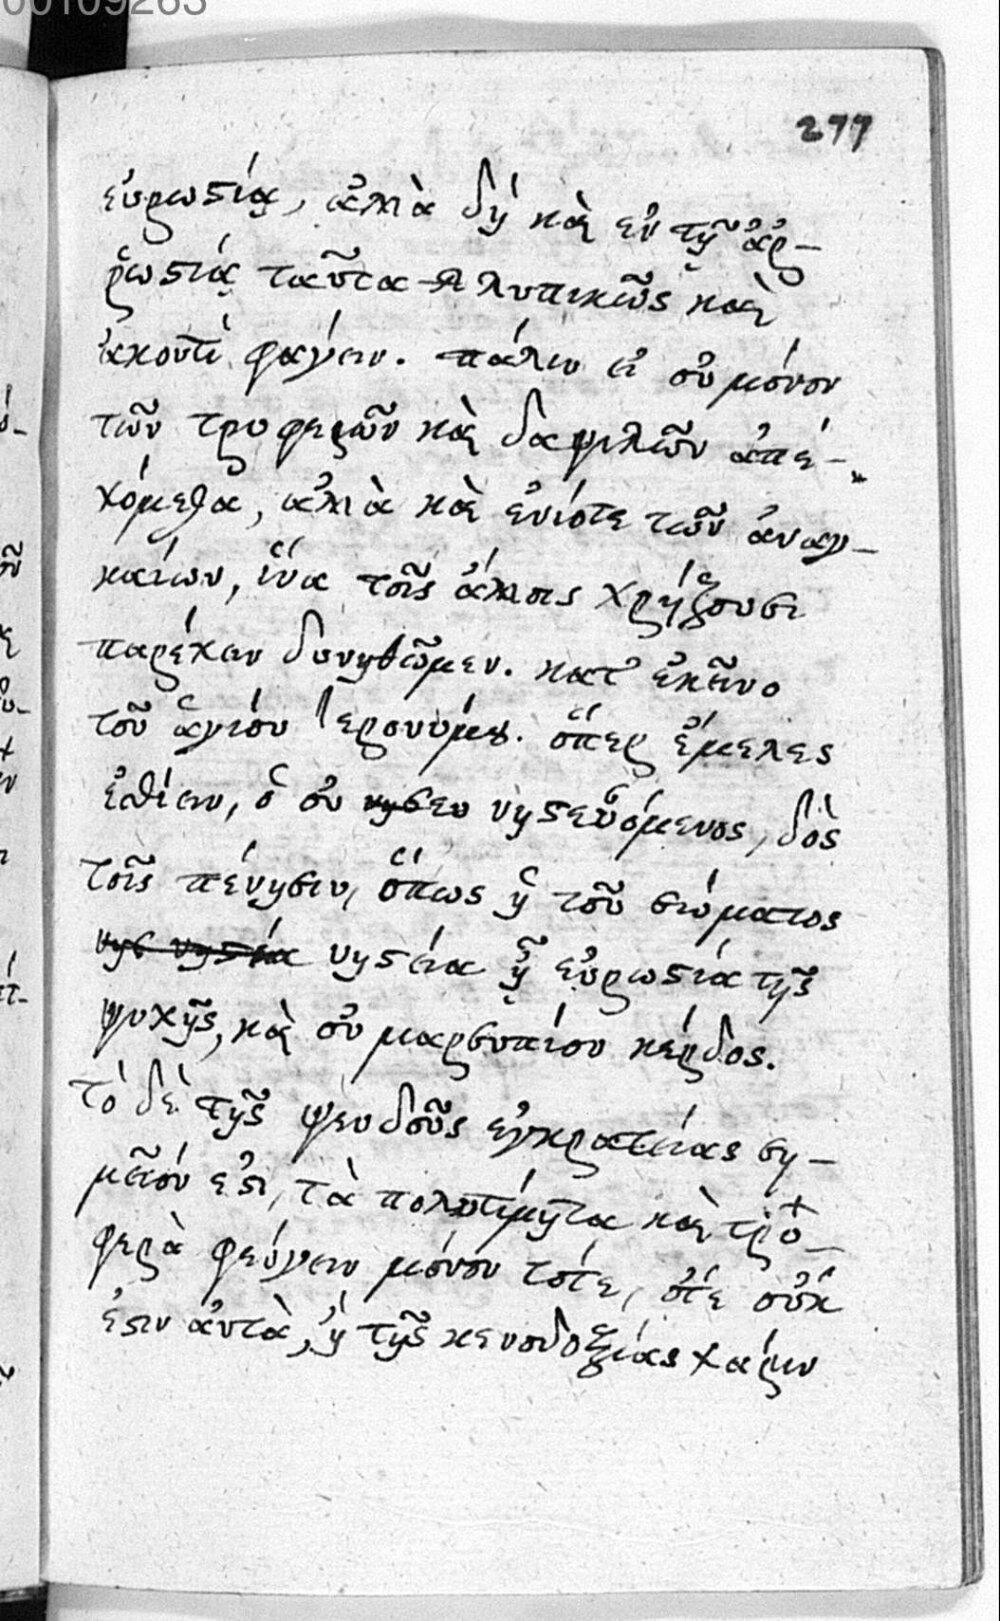 00109263
277
εὐρωστίᾳ, ἀλλὰ δὴ καὶ ἐν τῇ ἀρ-
ῥωστίᾳ ταῦτα λυπικῶς καὶ
ἀκοντὶ φαγεῖν. πάλιν εἰ οὐ μόνον
τῶν τρυφερῶν καὶ δαψιλῶν ἀπε-
χόμεθα, ἀλλὰ καὶ ἐνίοτε τῶν ἀναγ-
καίων, ἵνα τοῖς ἄλλοις χρῄζουσι
παρέχειν δυνηθῶμεν. κατ' ἐκεῖνο
τοῦ ἁγίου Ἱερονύμου. ὅπερ ἔμελες
ἐσθίειν, ὁ οὐ νηστευόμενος, δὸς
τοῖς πένησιν, ὅπως ἡ τοῦ σώματος
νηστεία ᾖ εὐρωστία τῆς
ψυχῆς, καὶ οὐ μαρσυπίου κέρδος.
τὸ δὲ τῆς ψευδοῦς ἐγκρατείας ση-
μεῖόν ἐστι, τὰ πολυτίμητα καὶ τρο-
φερὰ φεύγειν μόνον τότε, ὅτε οὐκ
ἔστιν αὐτὰ, ἢ τῆς κενοδοξίας χάριν